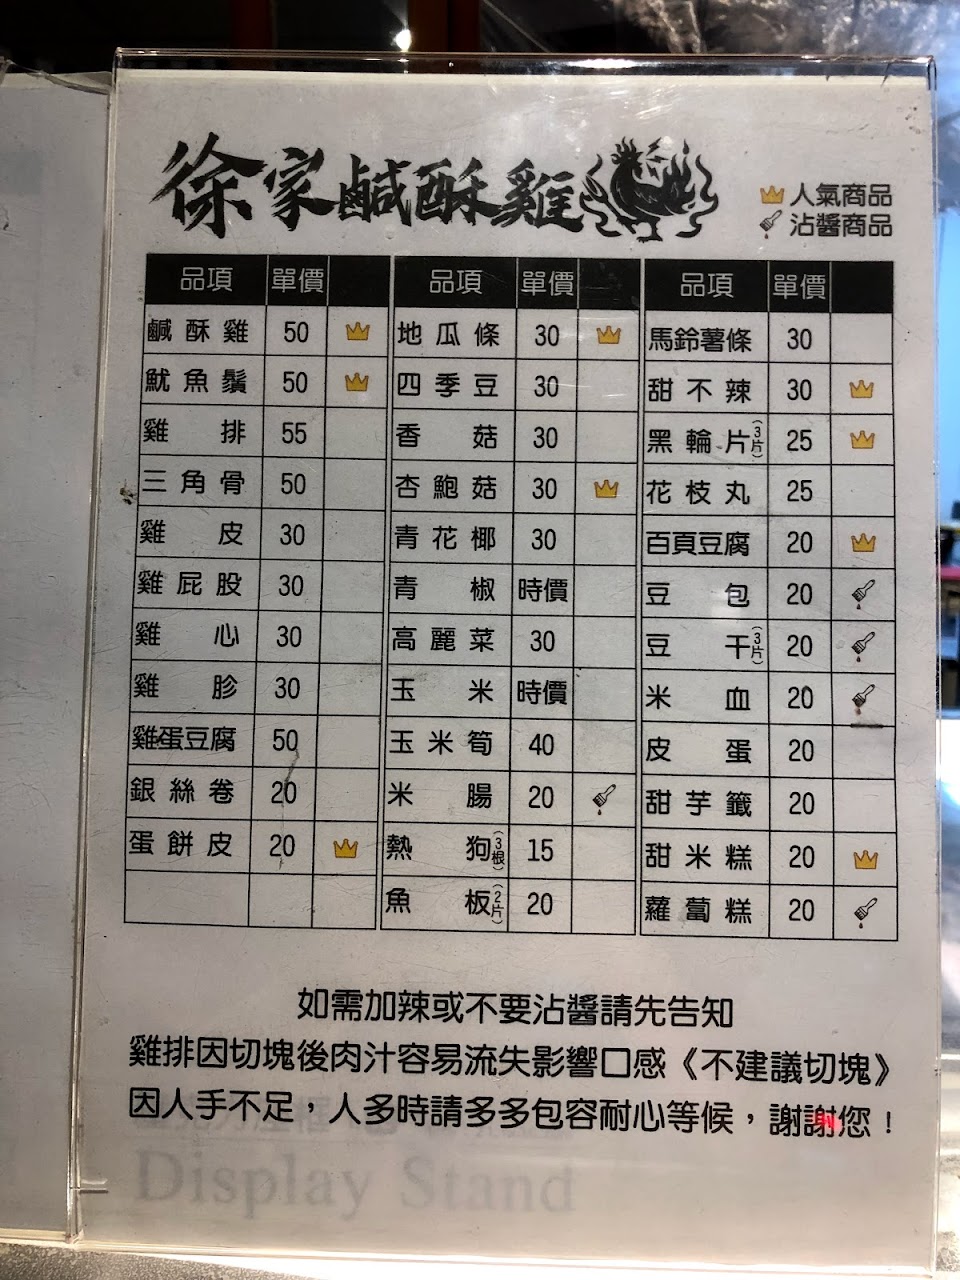 徐家鹹酥雞
人氣商品
沾醬商品
品項 單價
鹹酥雞 50
魷魚鬚 50
雞排 55
三角骨 50
雞皮 30
雞屁股 30
雞心 30
雞胗 30
雞蛋豆腐 50
銀絲卷 20
蛋餅皮 20
品項 單價
地瓜條 30
四季豆 30
香菇 30
杏鮑菇 30
青花椰 30
青椒 時價
高麗菜 30
玉米 時價
玉米筍 40
米腸 20
熱狗(3根) 15
魚板(2片) 20
品項 單價
馬鈴薯條 30
甜不辣 30
黑輪片(3片) 25
花枝丸 25
百頁豆腐 20
豆包 20
豆干(3片) 20
米血 20
皮蛋 20
甜芋籤 20
甜米糕 20
蘿蔔糕 20
如需加辣或不要沾醬請先告知
雞排因切塊後肉汁容易流失影響口感《不建議切塊》
因人手不足，人多時請多多包容耐心等候，謝謝您！
Display Stand